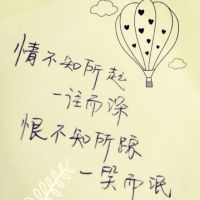 情不知所起
一往而深
恨不知所踪
一笑而泯